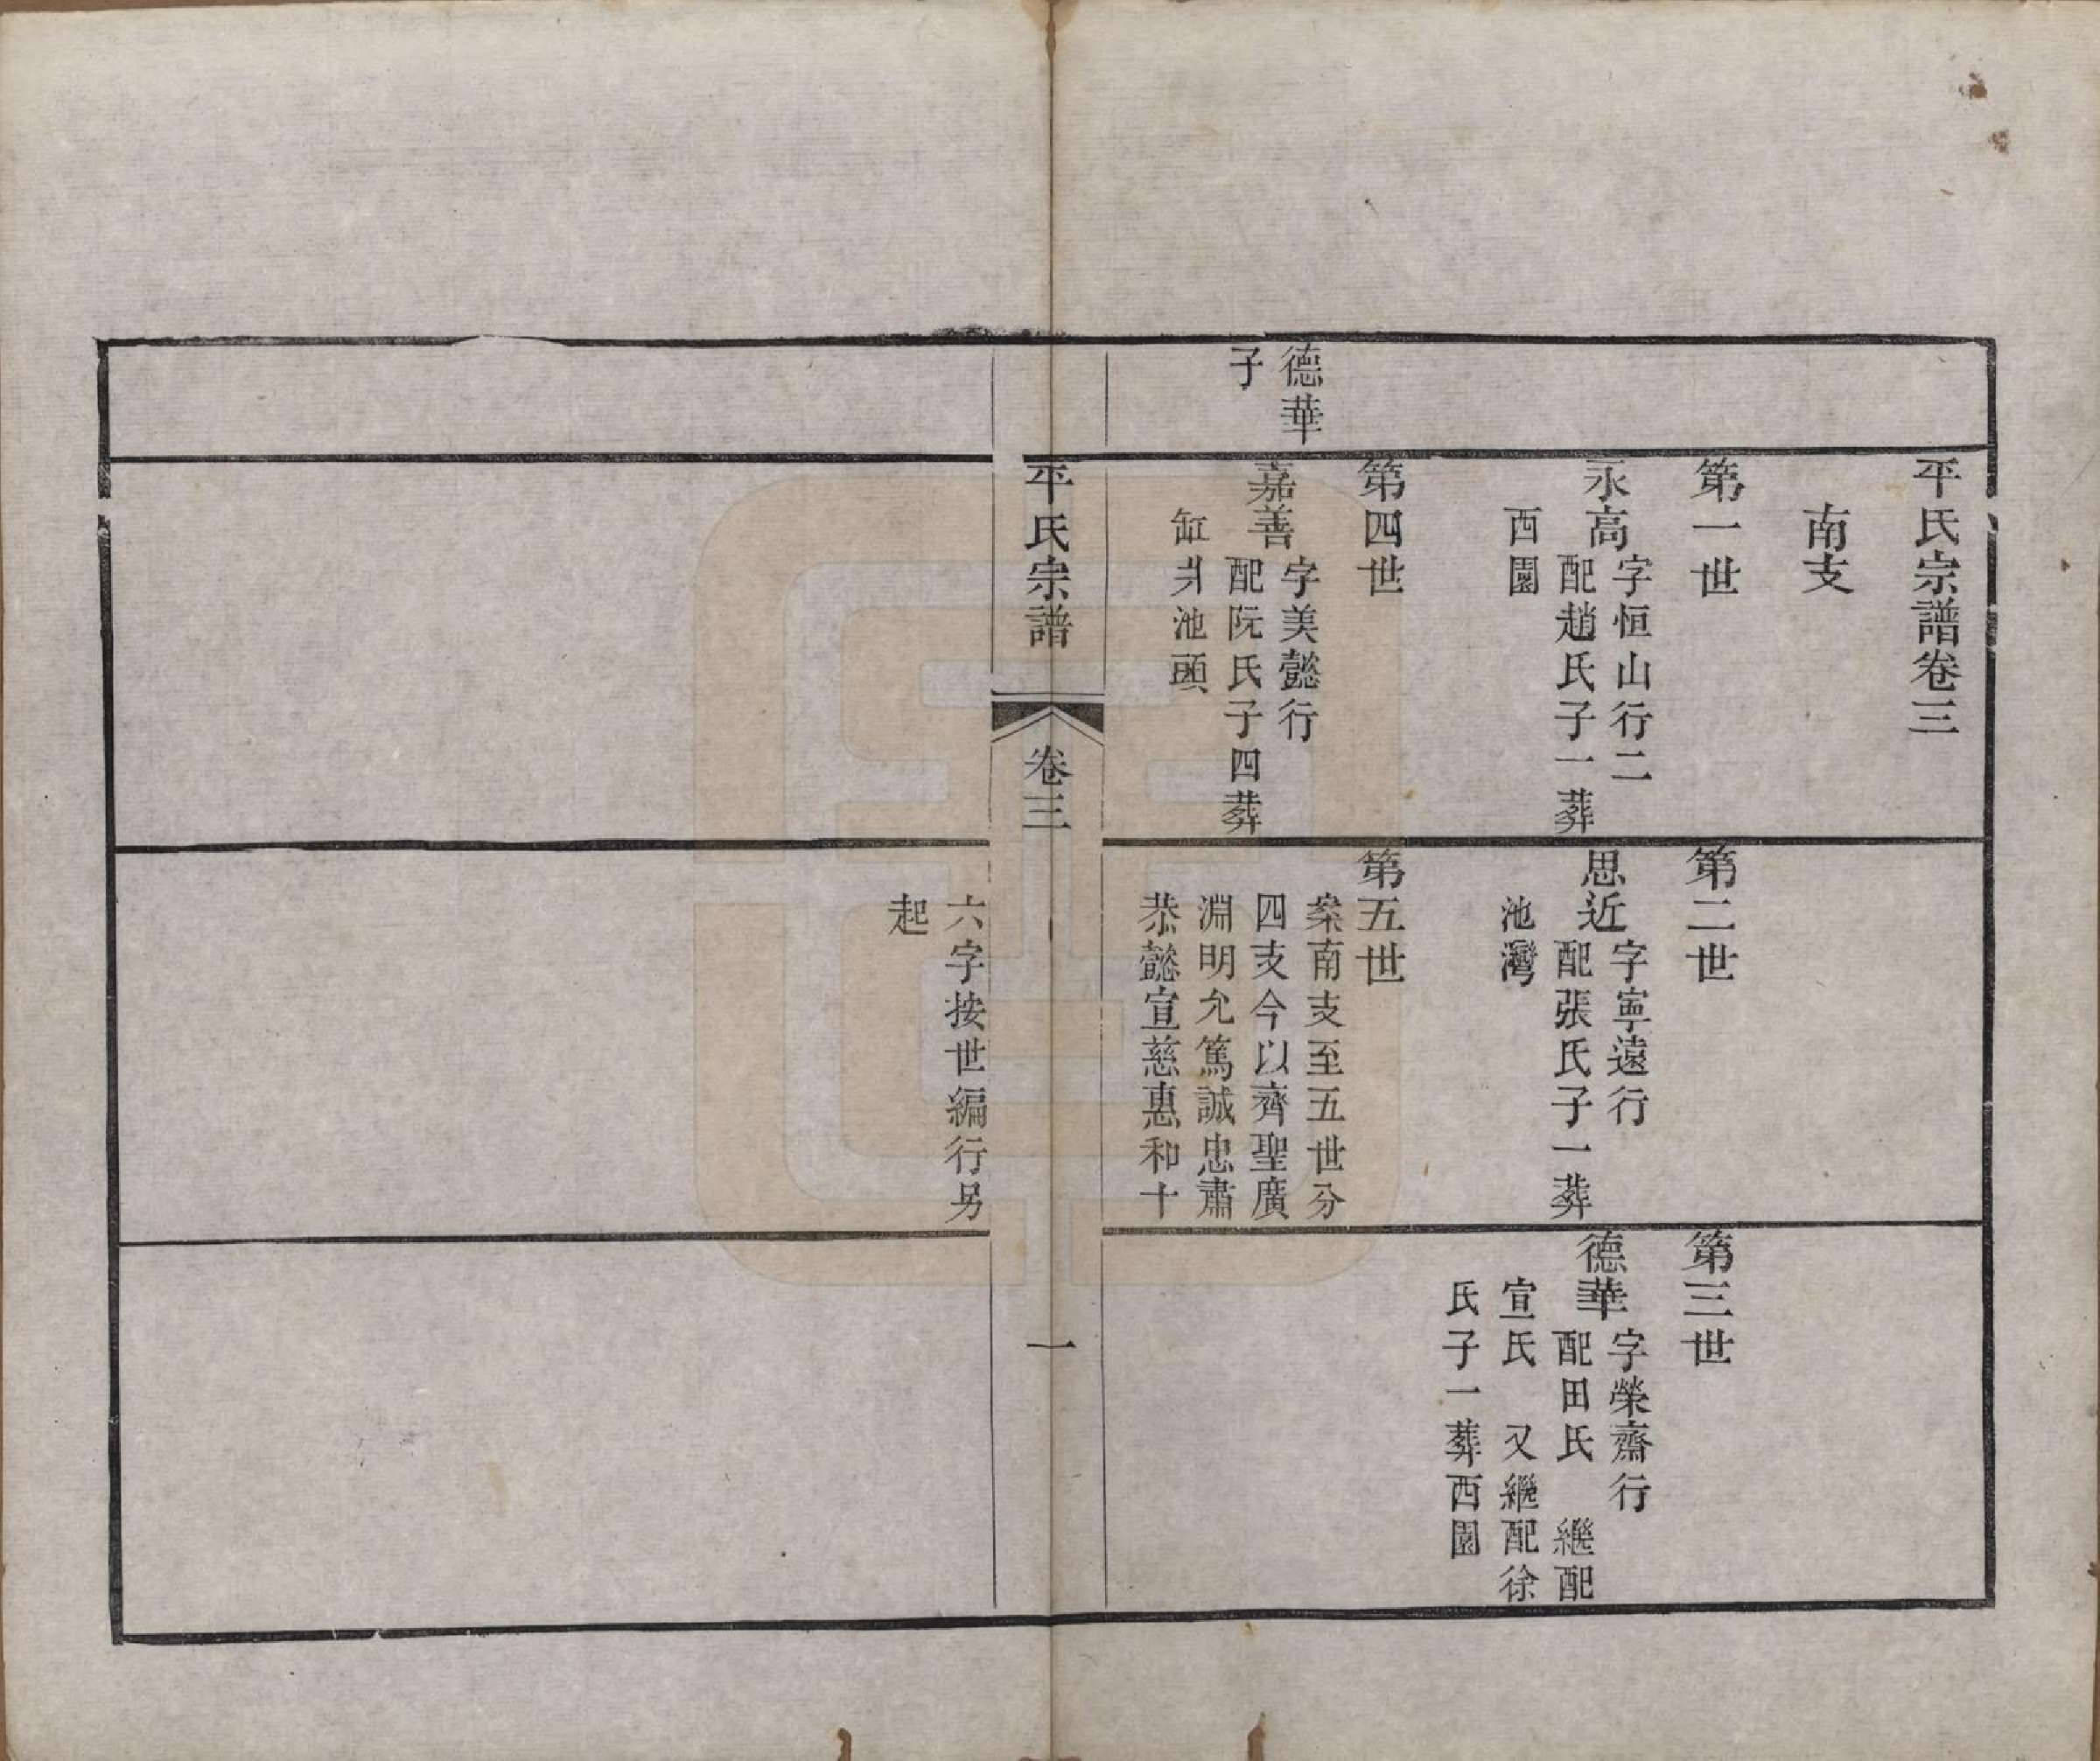 平氏宗譜卷三
南支
第一世
永高
字恒山行二
配趙氏子一葬
西園
第二世
思近
字寧遠行
配張氏子一葬
池灣
第三世
德華
字榮齋行
配田氏 繼配
宣氏 又繼配徐
氏子一葬西園
德華
子
第四世
嘉善
字美懿行
配阮氏子四葬
缸爿池頭
第五世
案南支至五世分
四支今以齊聖廣
淵明允篤誠忠肅
恭懿宣慈惠和十
六字按世編行另
起
平氏宗譜
卷三
一